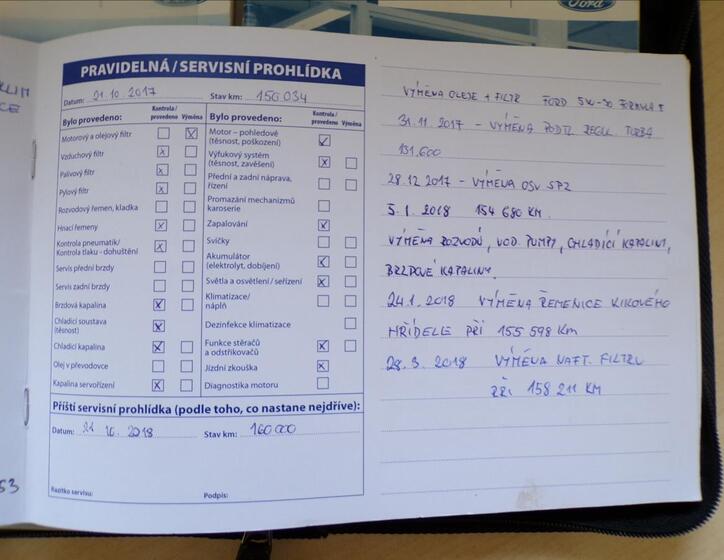 Ford
PRAVIDELNÁ / SERVISNÍ PROHLÍDKA
Datum: 21. 10. 2017 Stav km: 150 034
Bylo provedeno: Kontrola / provedeno Výměna
Motorový a olejový filtr
Vzduchový filtr
Palivový filtr
Pylový filtr
Rozvodový řemen, kladka
Hnací řemeny
Kontrola pneumatik/
Kontrola tlaku - dohuštění
Servis přední brzdy
Servis zadní brzdy
Brzdová kapalina
Chladicí soustava
(těsnost)
Chladicí kapalina
Olej v převodovce
Kapalina servořízení
Bylo provedeno: Kontrola / provedeno Výměna
Motor – pohledově
(těsnost, poškození)
Výfukový systém
(těsnost, zavěšení)
Přední a zadní náprava,
řízení
Promazání mechanizmů
karoserie
Zapalování
Svíčky
Akumulátor
(elektrolyt, dobíjení)
Světla a osvětlení / seřízení
Klimatizace/
náplň
Dezinfekce klimatizace
Funkce stěračů
a odstřikovačů
Jízdní zkouška
Diagnostika motoru
Příští servisní prohlídka (podle toho, co nastane nejdříve):
Datum: 21 10. 2018 Stav km: 160 000
Razítko servisu: Podpis:
53
VÝMĚNA OLEJE + FILTR FORD 5W-30 FORMULA F
31. 11 2017 - VÝMĚNA PODTL. REGUL. TURBA
151.600
28.12 2017 - VÝMĚNA OSV. SPZ
5. 1. 2018 154 680 KM.
VÝMĚNA ROZVODŮ, VOD. PUMPY, CHLADÍCÍ KAPALINY,
BRZDOVÉ KAPALINY.
24.1. 2018 VÝMĚNA ŘEMENICE KLIKOVÉHO
HŘÍDELE PŘI 155 598 Km
28. 3. 2018 VÝMĚNA NAFT. FILTRU
PŘI 158 211 KM